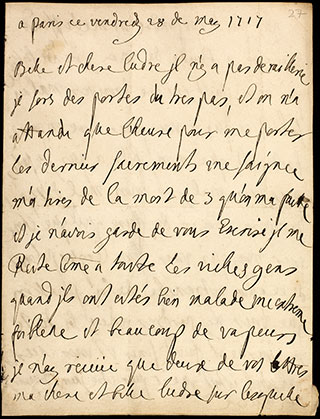 27
a paris ce vendredy 28 de may 1717
Belle et chere ludre jl n'y a pas de raillerie
je sors des portes du trespas, et on n'a
attandu que lheure pour me porter
les dernier sacrements une saignee
m'a tiree de la mort de 3 qu'on ma faitte
et je n'avois garde de vous Escrire jl me
Reste come a toutte les vielles gens
quand jls ont estés bien malade une extreme
foiblesse et beaucoup de vapeurs
je n'ay receüe que deux de vos lettres
ma chere et belle ludre sur lesquelle